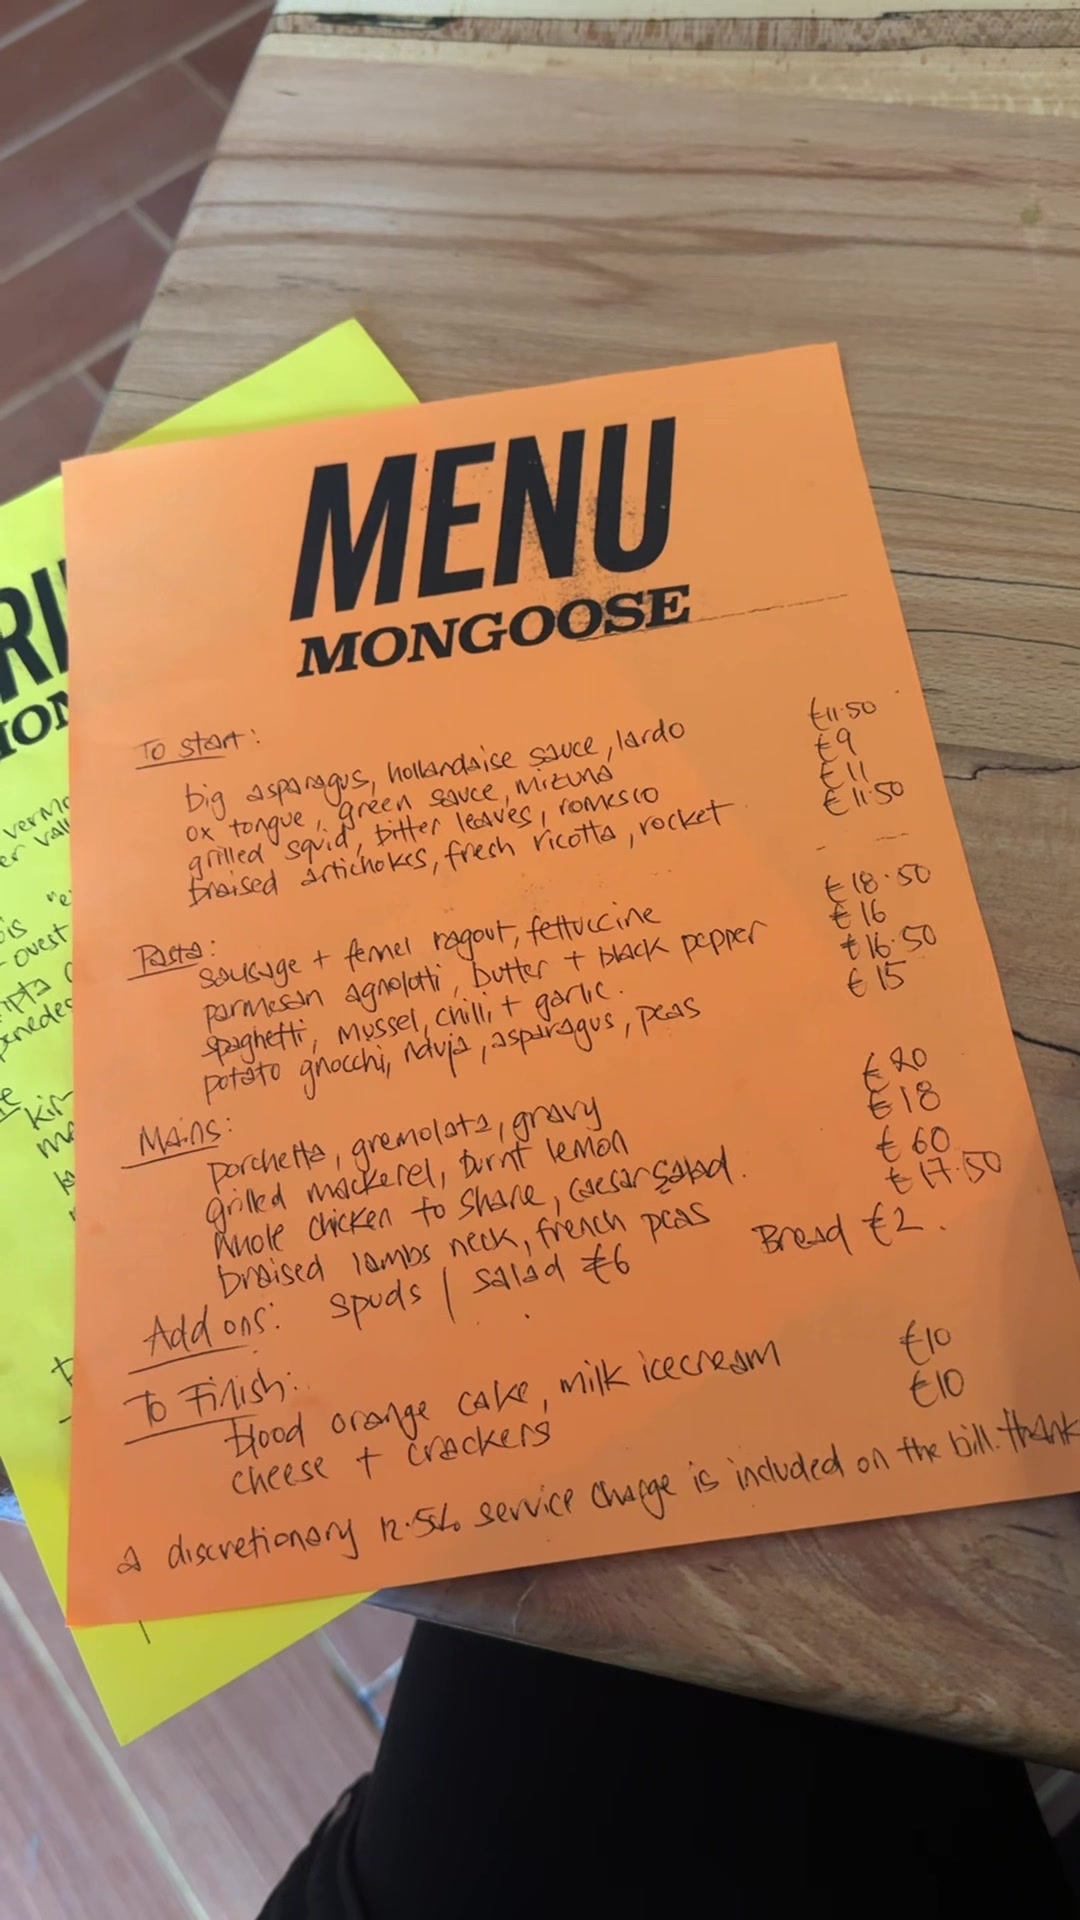 MENU
MONGOOSE
To start:
big asparagus, hollandaise sauce, lardo €11.50
ox tongue, green sauce, mizuna €9
grilled squid, bitter leaves, romesco €11
braised artichokes, fresh ricotta, rocket €11.50
Pasta:
sausage + fennel ragout, fettuccine €18.50
parmesan agnolotti, butter + black pepper €16
spaghetti, mussel, chilli, + garlic. €16.50
potato gnocchi, nduja, asparagus, peas €15
Mains:
porchetta, gremolata, gravy €20
grilled mackerel, burnt lemon €18
whole chicken to share, caesar salad. €60
braised lambs neck, french peas €17.50
Add ons: spuds / salad €6 Bread €2.
To Finish:
blood orange cake, milk icecream €10
cheese + crackers €10
a discretionary 12.5% service charge is included on the bill. thank
RI
ION
verm
er val
"e
ouest
enedes
kir